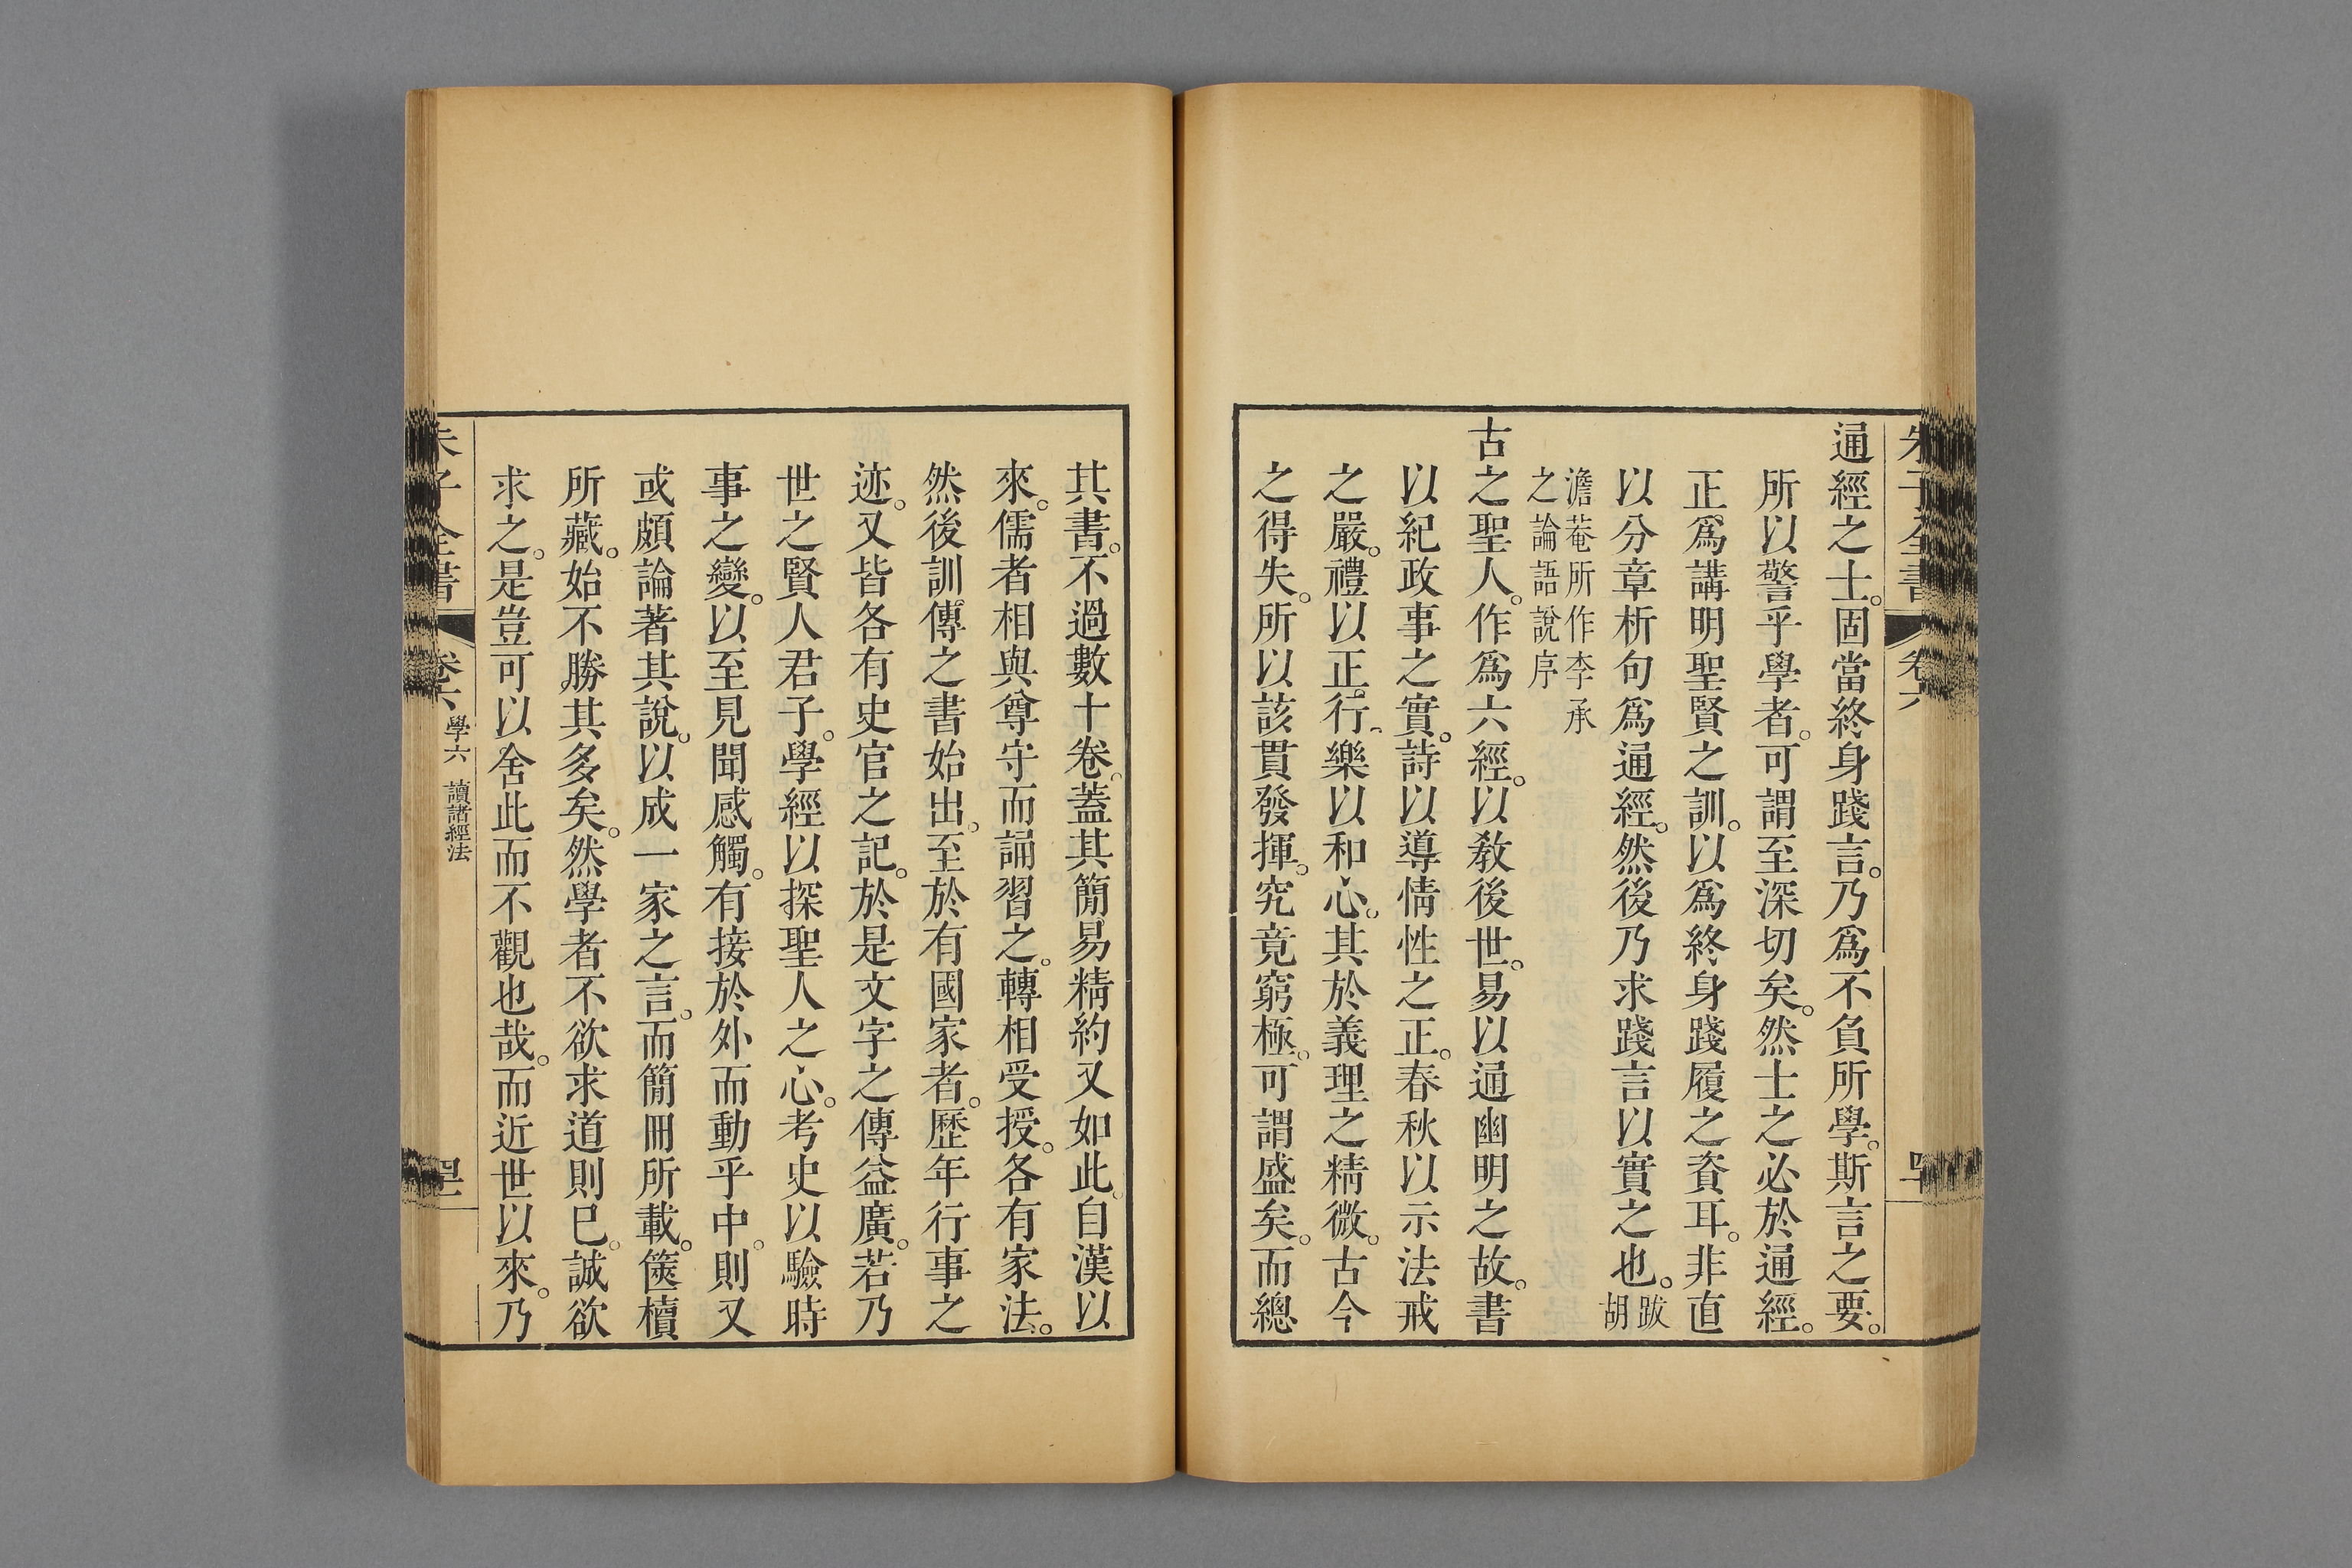 朱子全書 卷六
通經之士。固當終身踐言。乃爲不負所學。斯言之要。
所以警乎學者。可謂至深切矣。然士之必於通經。
正爲講明聖賢之訓。以爲終身踐履之資耳。非直
以分章析句爲通經。然後乃求踐言以實之也。跋胡
澹菴所作李承
之論語說序
古之聖人。作爲六經。以教後世。易以通幽明之故。書
以紀政事之實。詩以導情性之正。春秋以示法戒
之嚴。禮以正行、樂以和心。其於義理之精微。古今
之得失。所以該貫發揮。究竟窮極。可謂盛矣。而總
其書。不過數十卷。蓋其簡易精約又如此。自漢以
來。儒者相與尊守而誦習之。轉相受授。各有家法。
然後訓傳之書始出。至於有國家者。歷年行事之
迹。又皆各有史官之記。於是文字之傳益廣。若乃
世之賢人君子。學經以探聖人之心。考史以驗時
事之變。以至見聞感觸。有接於外而動乎中。則又
或頗論著其說。以成一家之言。而簡冊所載。篋櫝
所藏。始不勝其多矣。然學者不欲求道則已。誠欲
求之。是豈可以舍此而不觀也哉。而近世以來。乃
朱子全書 卷六 學六 讀諸經法